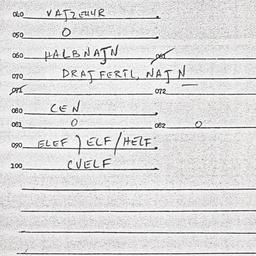 040 VAJZEUUR
050 O
060 HALBNAJN 061
070 DRAJFERTL, NAJN
071 072
080 CEN
081 O 082 O
090 ELEF ) ELF / HELF
100 CVELF